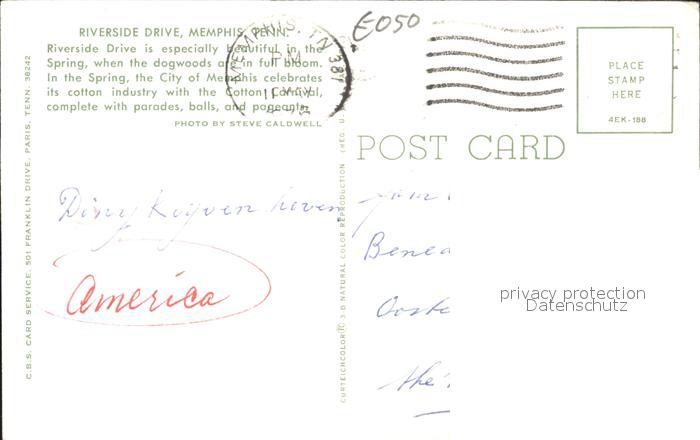 RIVERSIDE DRIVE, MEMPHIS, TENN.
Riverside Drive is especially beautiful in the
Spring, when the dogwoods are in full bloom.
In the Spring, the City of Memphis celebrates
its cotton industry with the Cotton Carnival,
complete with parades, balls, and pageants.
PHOTO BY STEVE CALDWELL
C.B.S. CARD SERVICE, 501 FRANKLIN DRIVE, PARIS, TENN. 38242
MEMPHIS, TN 381
PM
E050
PLACE
STAMP
HERE
4EK-188
POST CARD
CURTEICHCOLOR® 3-D NATURAL COLOR REPRODUCTION (REG. U.
America
Bened
Ooste
the
privacy protection
Datenschutz